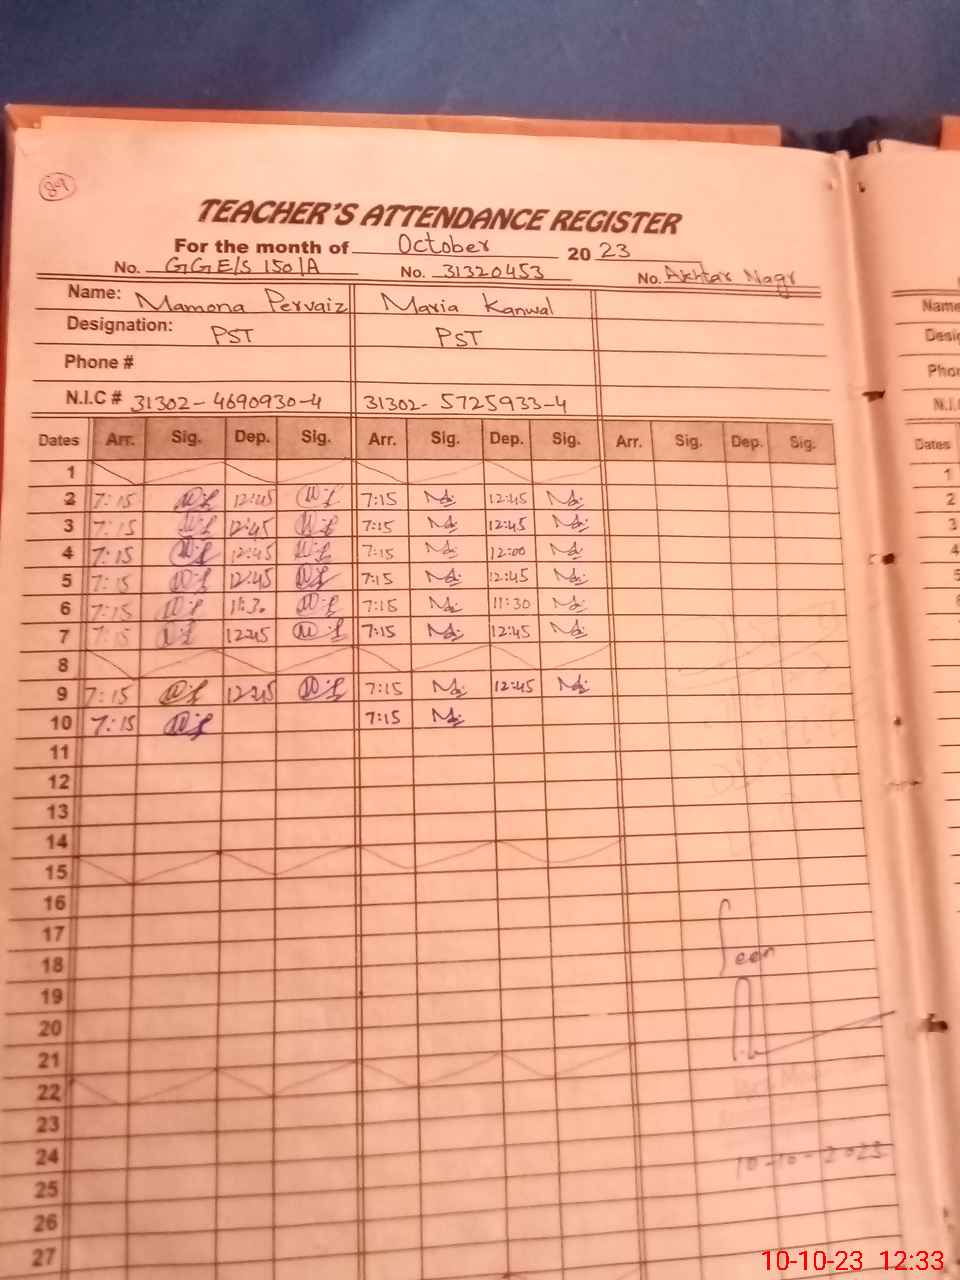 89
TEACHER'S ATTENDANCE REGISTER
For the month of October 2023
No. GGE/S 150/A No. 31320453 No. Akhtar Nagr
Name: Mamona Pervaiz Maria Kanwal
Designation: PST PST
Phone #
N.I.C # 31302-4690930-4 31302-5725933-4
Dates Arr. Sig. Dep. Sig. Arr. Sig. Dep. Sig. Arr. Sig. Dep. Sig.
1
2 7:15 12:45 7:15 12:45
3 7:15 12:45 7:15 12:45
4 7:15 12:45 7:15 12:00
5 7:15 12:45 7:15 12:45
6 7:15 11:30 7:15 11:30
7 7:15 12:45 7:15 12:45
8
9 7:15 12:45 7:15 12:45
10 7:15 7:15
11
12
13
14
15
16
17
18 Seen
19
20
21
22
23
24 10-10-2023
25
26
27
Name
Desig
Phon
N.I.
Dates
1
2
3
4
5
10-10-23 12:33